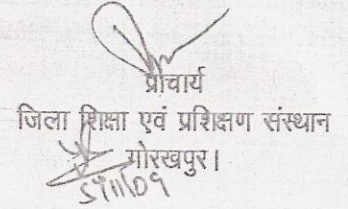 प्राचार्य
जिला शिक्षा एवं प्रशिक्षण संस्थान
गोरखपुर।
5/11/09